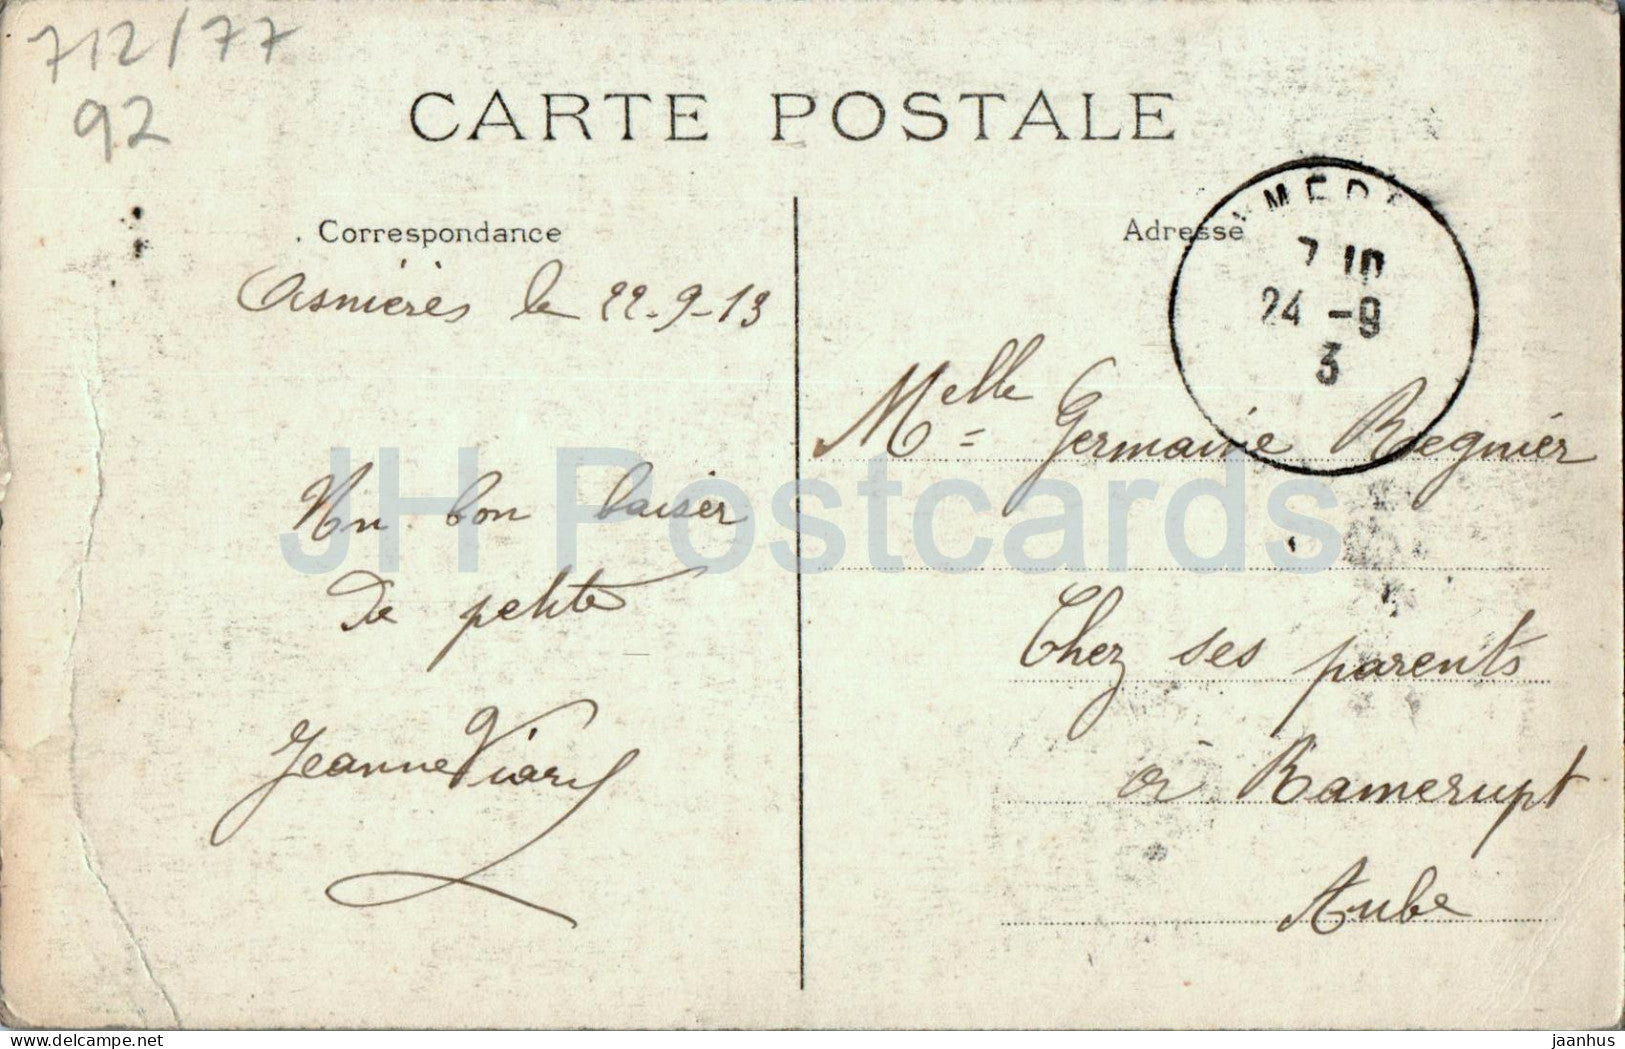 712/77
92
CARTE POSTALE
Correspondance
Adresse
Asnières le 22-9-13
7 10
24 -9
3
Melle Germaine Regnier
Un bon baiser
de petite
Jeanne Viard
Chez ses parents
à Ramerupt
Aube
JH Postcards
delcampe.net
jaanhus